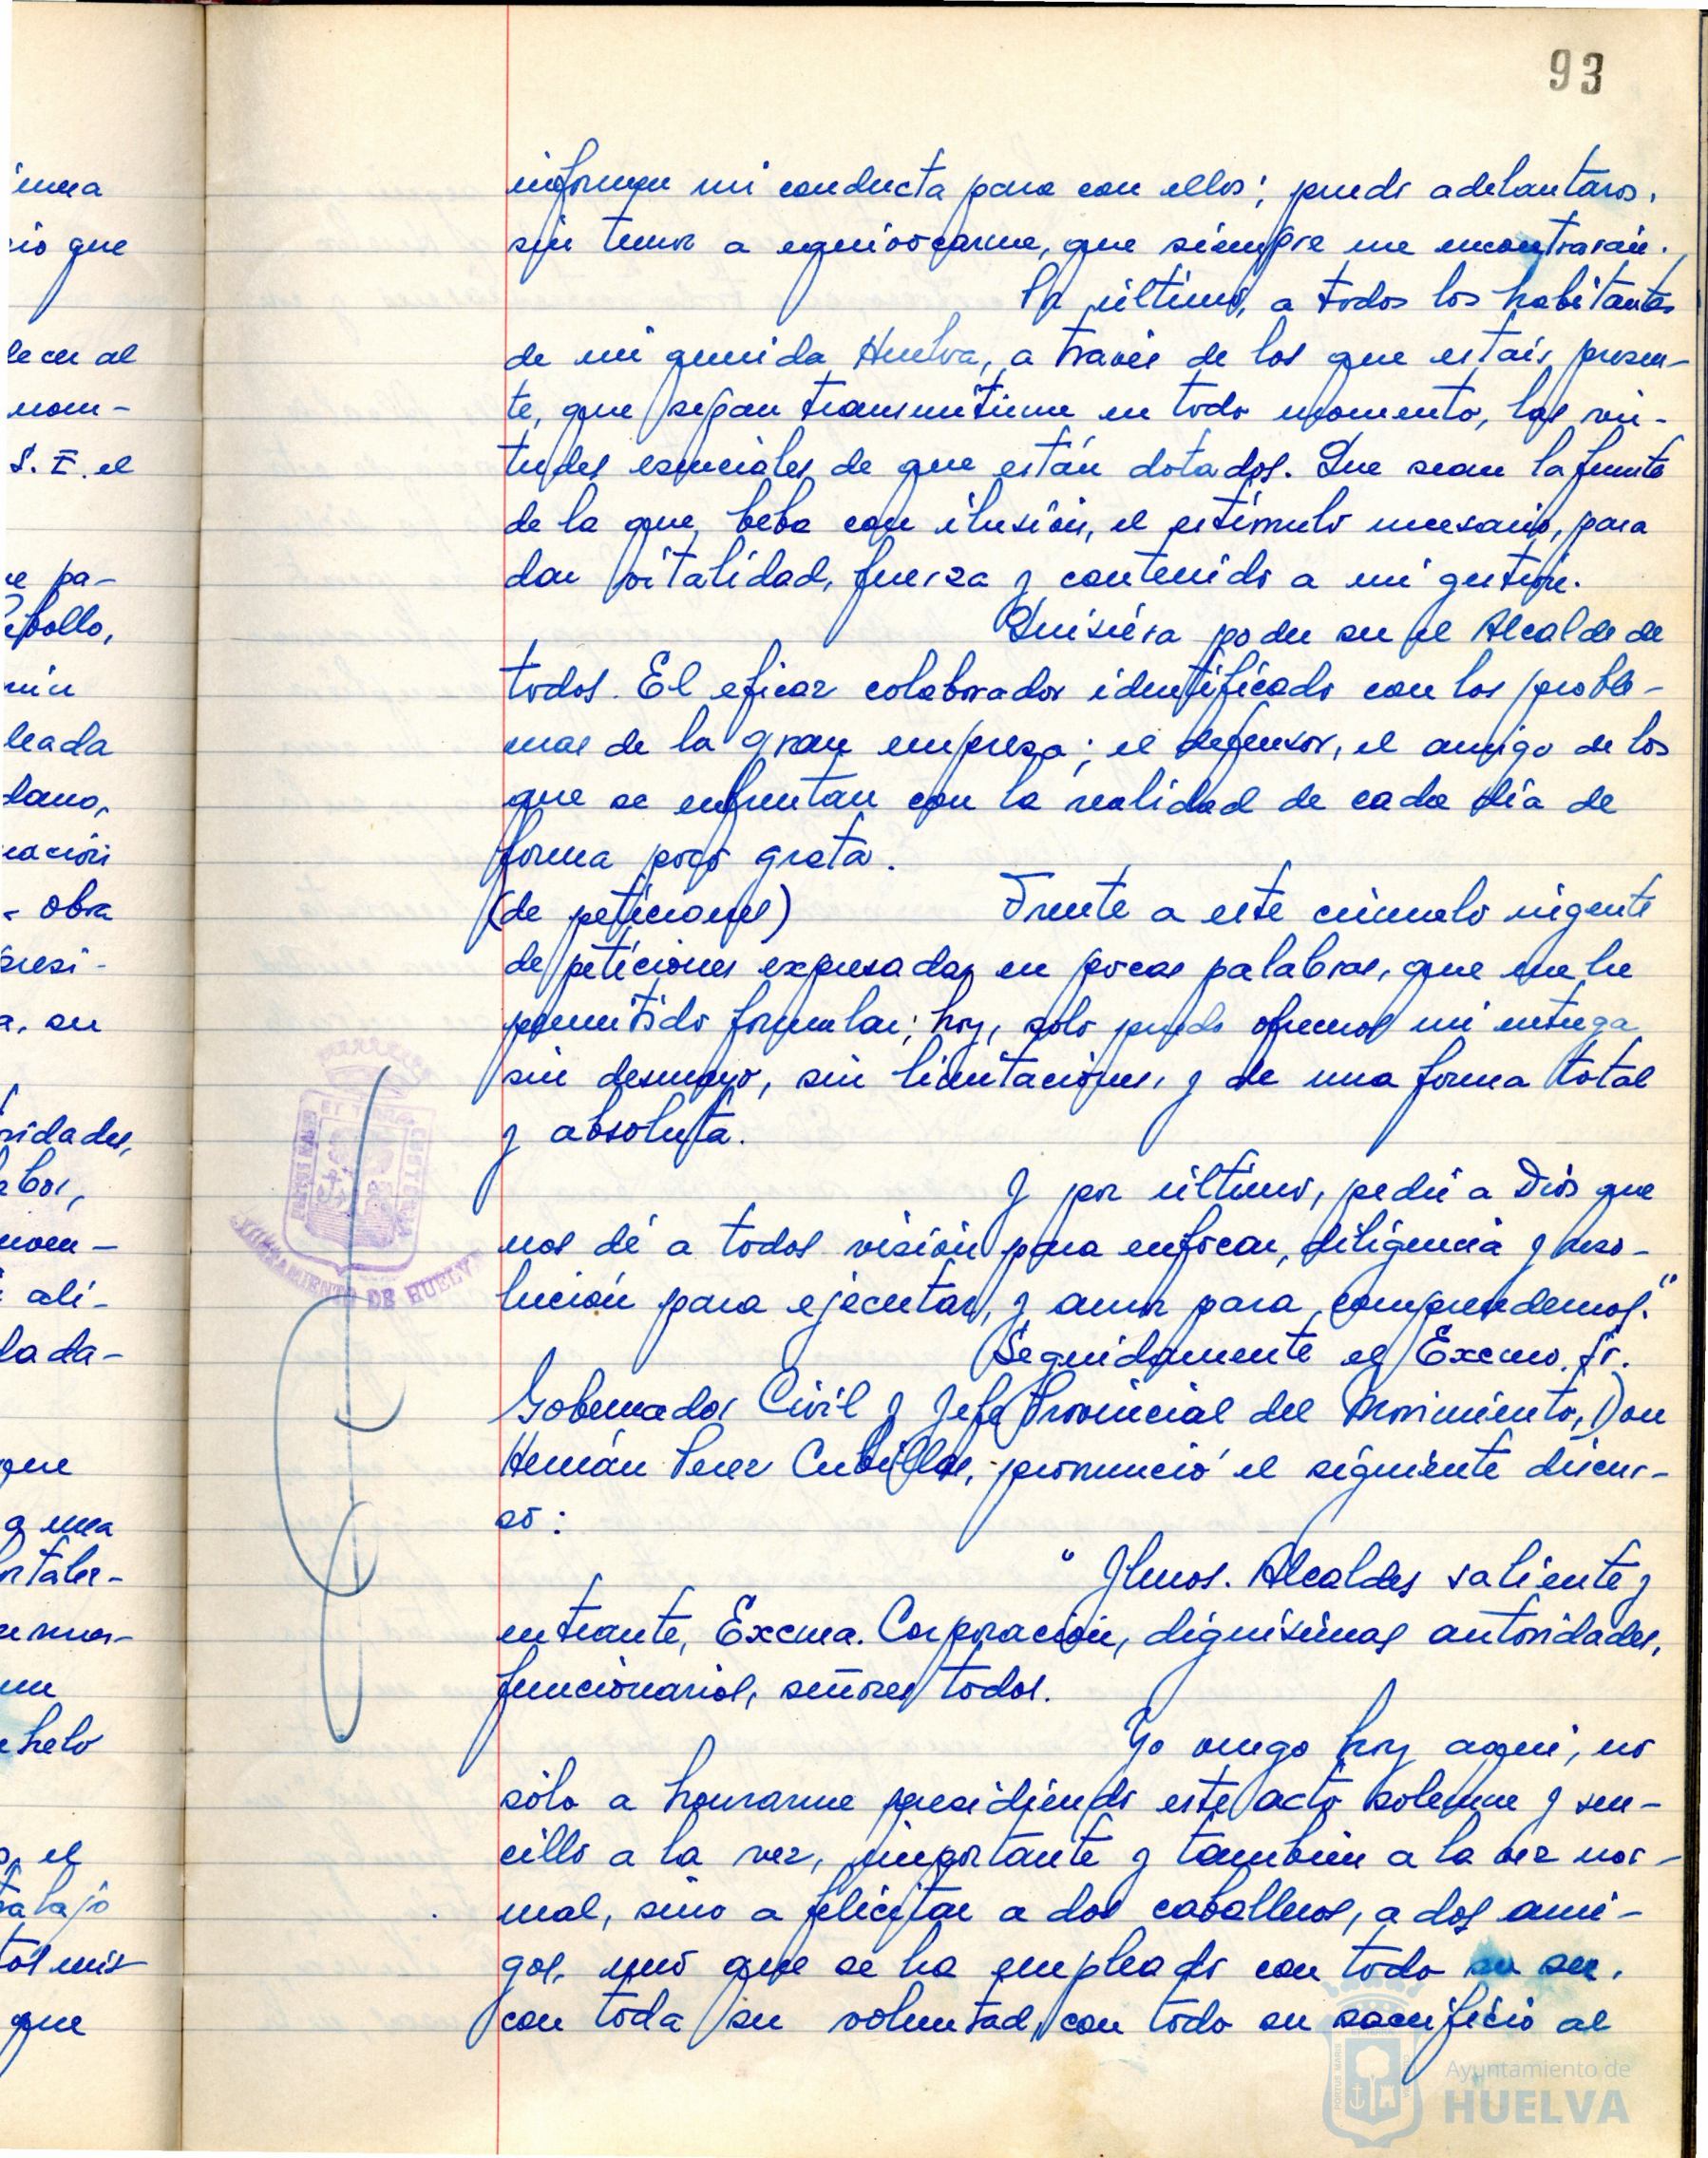 93
informen mi conducta para con ellos; puedo adelantaros,
sin temor a equivocarme, que siempre me encontrarán.
Por último, a todos los habitantes
de mi querida Huelva, a través de los que estáis presen-
te, que sepan transmitirme en todo momento, las vir-
tudes esenciales de que están dotados. Que sean la fuente
de la que beba con ilusión, el estímulo necesario, para
dar vitalidad, fuerza y contenido a mi gestión.
Quisiera poder ser el Alcalde de
todos. El eficaz colaborador identificado con los proble-
mas de la gran empresa; el defensor, el amigo de los
que se enfrentan con la realidad de cada día de
forma poco grata.
(de peticiones) Frente a este cúmulo ingente
de peticiones expresadas en pocas palabras, que me he
permitido formular; hoy, solo puedo ofreceros mi entrega
sin desmayo, sin limitaciones, y de una forma total
y absoluta.
Y por último, pedir a Dios que
nos dé a todos visión para enfocar, diligencia y reso-
lución para ejecutar, y amor para comprendernos."
Seguidamente el Excmo. Sr.
Gobernador Civil y Jefe Provincial del Movimiento, Don
Hernán Perez Cubillas, pronunció el siguiente discur-
so:
" Ylmos. Alcaldes saliente y
entrante, Excma. Corporación, dignísimas autoridades,
funcionarios, señores todos.
Yo vengo hoy aquí, no
sólo a honrarme presidiendo este acto solemne y sen-
cillo a la vez, importante y también a la vez nor-
mal, sino a felicitar a dos caballeros, a dos ami-
gos, uno que se ha empleado con todo su ser,
con toda su voluntad, con todo su sacrificio al
AYUNTAMIENTO DE HUELVA
Ayuntamiento de
HUELVA